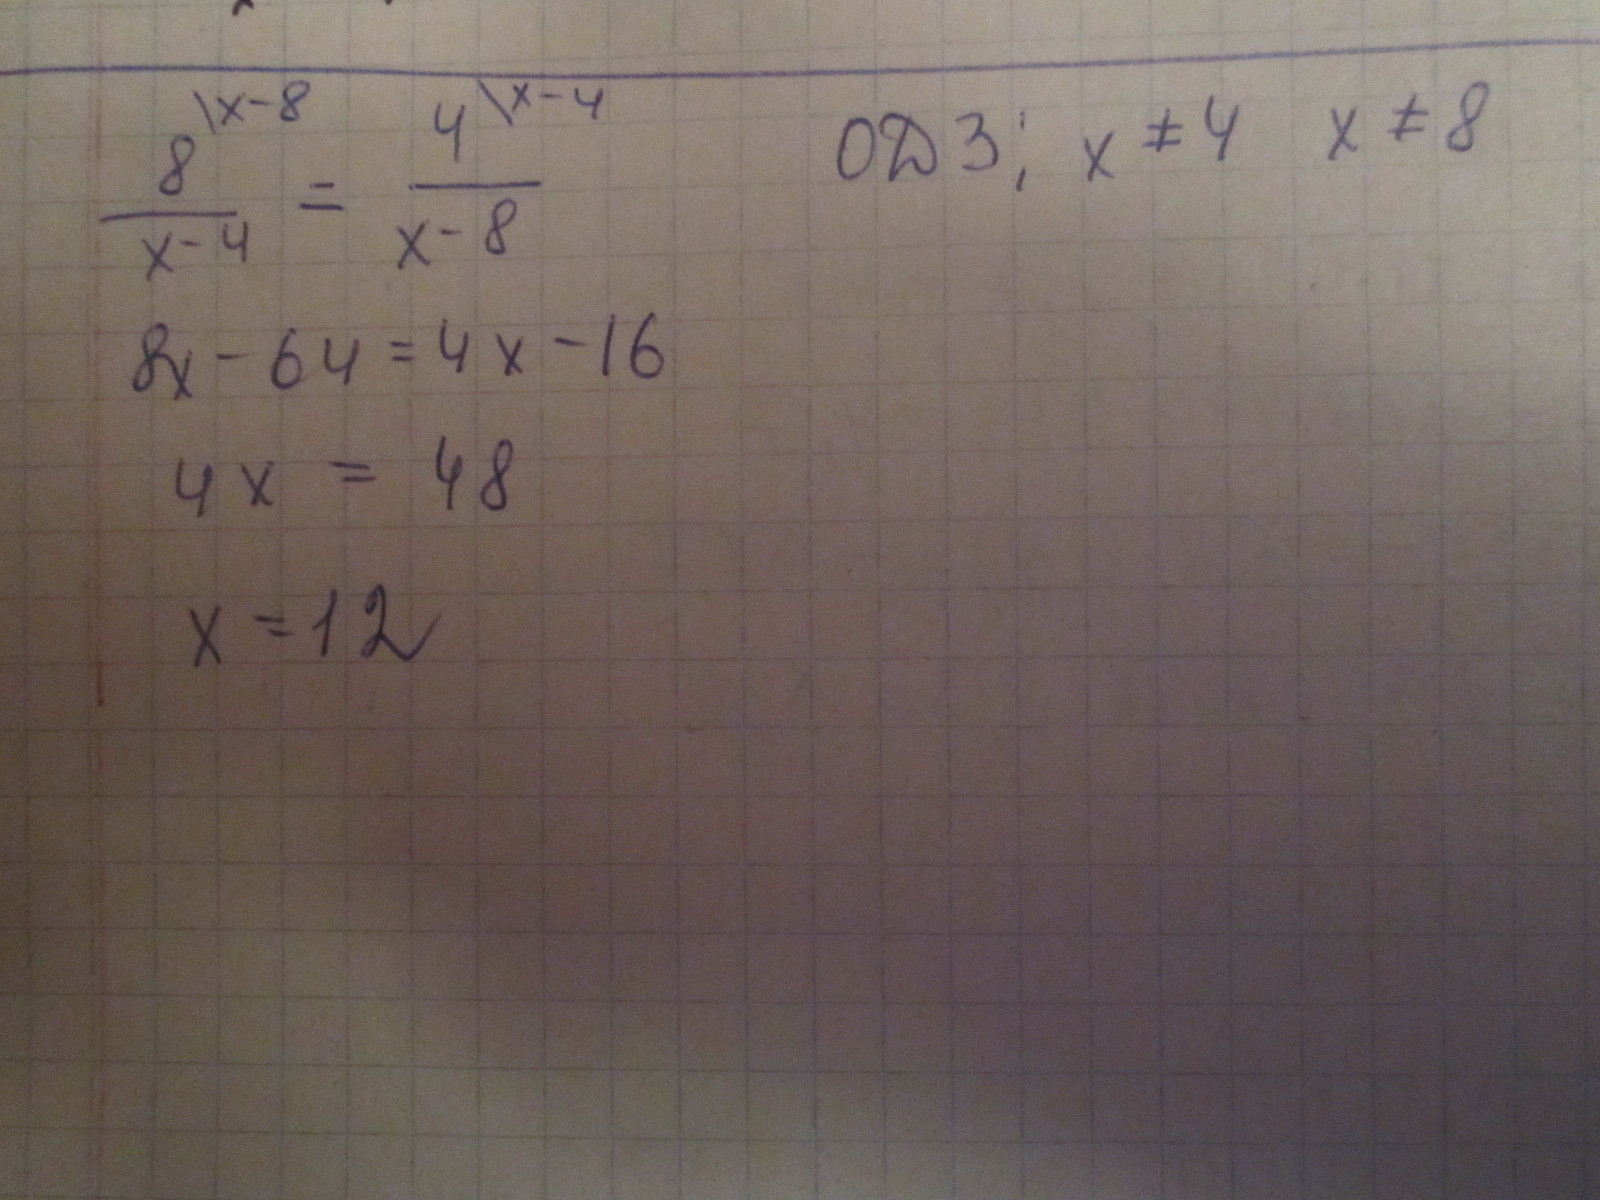 8\x-8 / x-4 = 4\x-4 / x-8 ОДЗ; x≠4 x≠8
8x-64=4x-16
4x = 48
x=12